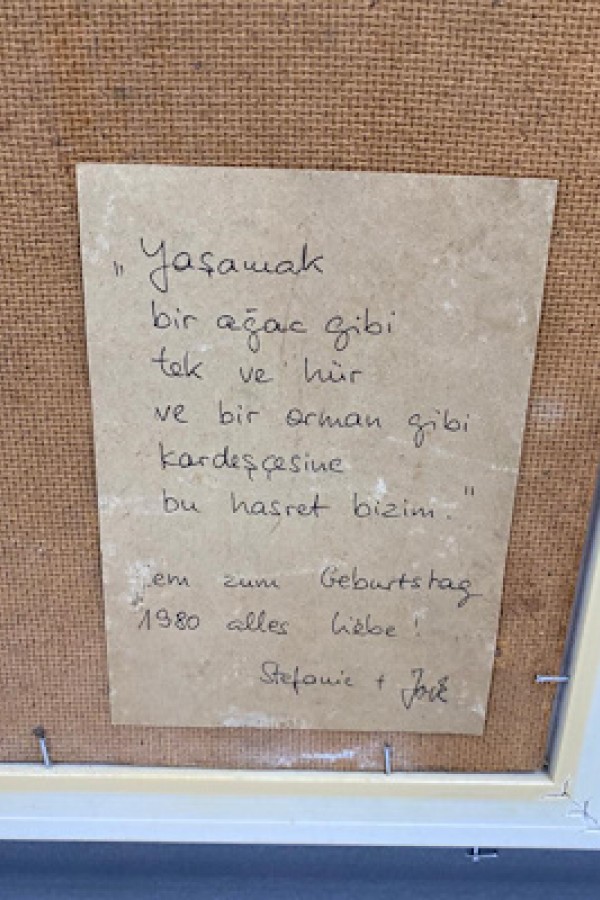 „Yaşamak
bir ağac gibi
tek ve hür
ve bir orman gibi
kardeşçesine
bu hasret bizim."
zum Geburtstag
1980 alles liebe!
Stefanie +